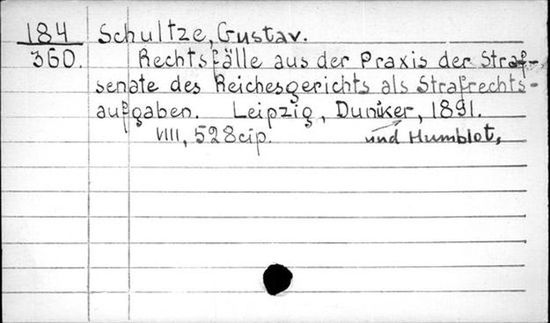 184 Schultze, Gustav.
360. Rechtsfälle aus der Praxis der Straf-
senate des Reichesgerichts als Strafrechts-
aufgaben. Leipzig, Dunker, 1891.
VIII, 528 cip. und Humblot,